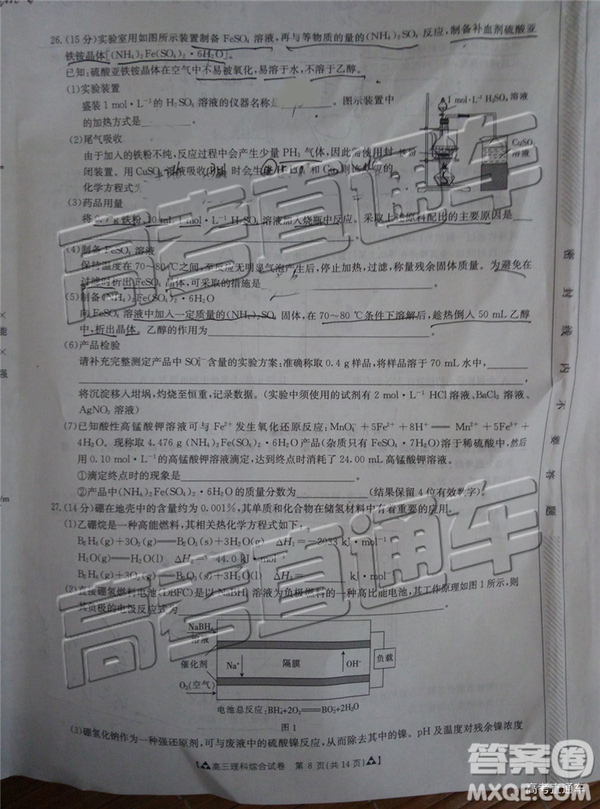 26.(15分)实验室用如图所示装置制备FeSO₄溶液,再与等物质的量的(NH₄)₂SO₄反应,制备补血剂硫酸亚
铁铵晶体[(NH₄)₂Fe(SO₄)₂·6H₂O]。
已知:硫酸亚铁铵晶体在空气中不易被氧化,易溶于水,不溶于乙醇。
(1)实验装置
盛装1 mol·L⁻¹的H₂SO₄溶液的仪器名称是 。图示装置中
的加热方式是 。
1 mol·L⁻¹ H₂SO₄溶液
CuSO₄
溶液
(2)尾气吸收
由于加入的铁粉不纯,反应过程中会产生少量PH₃气体,因此需使用封
闭装置。用CuSO₄溶液吸收 时会生 和Cu, 的
化学方程式
(3)药品用量
将 g铁粉、10 mL 1 mol·L⁻¹ H₂SO₄溶液加入烧瓶中反应。采取上述原料配比的主要原因是
(4)制备FeSO₄溶液
保持温度在70~80℃之间,至反应无明显气泡产生后,停止加热,过滤,称量残余固体质量。为避免在
过滤时析出FeSO₄晶体,可采取的措施是
(5)制备(NH₄)₂Fe(SO₄)₂·6H₂O
向FeSO₄溶液中加入一定质量的(NH₄)₂SO₄固体,在70~80℃条件下溶解后,趁热倒入50 mL乙醇
中,析出晶体。乙醇的作用为
(6)产品检验
请补充完整测定产品中SO₄²⁻含量的实验方案:准确称取0.4 g样品,将样品溶于70 mL水中,
将沉淀移入坩埚,灼烧至恒重,记录数据。(实验中须使用的试剂有2 mol·L⁻¹ HCl溶液、BaCl₂溶液、
AgNO₃溶液)
(7)已知酸性高锰酸钾溶液可与Fe²⁺发生氧化还原反应:MnO₄⁻+5Fe²⁺+8H⁺══Mn²⁺+5Fe³⁺+
4H₂O。现称取4.476 g(NH₄)₂Fe(SO₄)₂·6H₂O产品(杂质只有FeSO₄·7H₂O)溶于稀硫酸中,然后
用0.10 mol·L⁻¹的高锰酸钾溶液滴定,达到终点时消耗了24.00 mL高锰酸钾溶液。
①滴定终点时的现象是
②产品中(NH₄)₂Fe(SO₄)₂·6H₂O的质量分数为 (结果保留4位有效数字)。
27.(14分)硼在地壳中的含量约为0.001%,其单质和化合物在储氢材料中有重要作用。
(1)乙硼烷是一种高能燃料,其相关热化学方程式如下:
B₂H₆(g)+3O₂(g)══B₂O₃(s)+3H₂O(g) ΔH₁=-2033 kJ·mol⁻¹
H₂O(g)══H₂O(l) ΔH₂=-44.0 kJ·mol⁻¹
B₂H₆(g)+3O₂(g)══B₂O₃(s)+3H₂O(l) ΔH₃= kJ·mol⁻¹
(2)直接硼氢燃料电池(DBFC)是以NaBH₄溶液为负极燃料的一种高比能电池,其工作原理如图1所示,则
其负极的电极反应式为
NaBH₄
溶液
催化剂
O₂(空气)
Na⁺
隔膜
OH⁻
负载
电池总反应:BH₄⁻+2O₂══BO₂⁻+2H₂O
图1
(3)硼氢化钠作为一种强还原剂,可与废水中的硫酸镍反应,从而除去其中的镍。pH及温度对残余镍浓度
高三理科综合试卷 第8页(共14页)
密封线内不要答题
高考直通车
高考直通车
高考直通车
答案卷
MXQE.COM
高考直通车